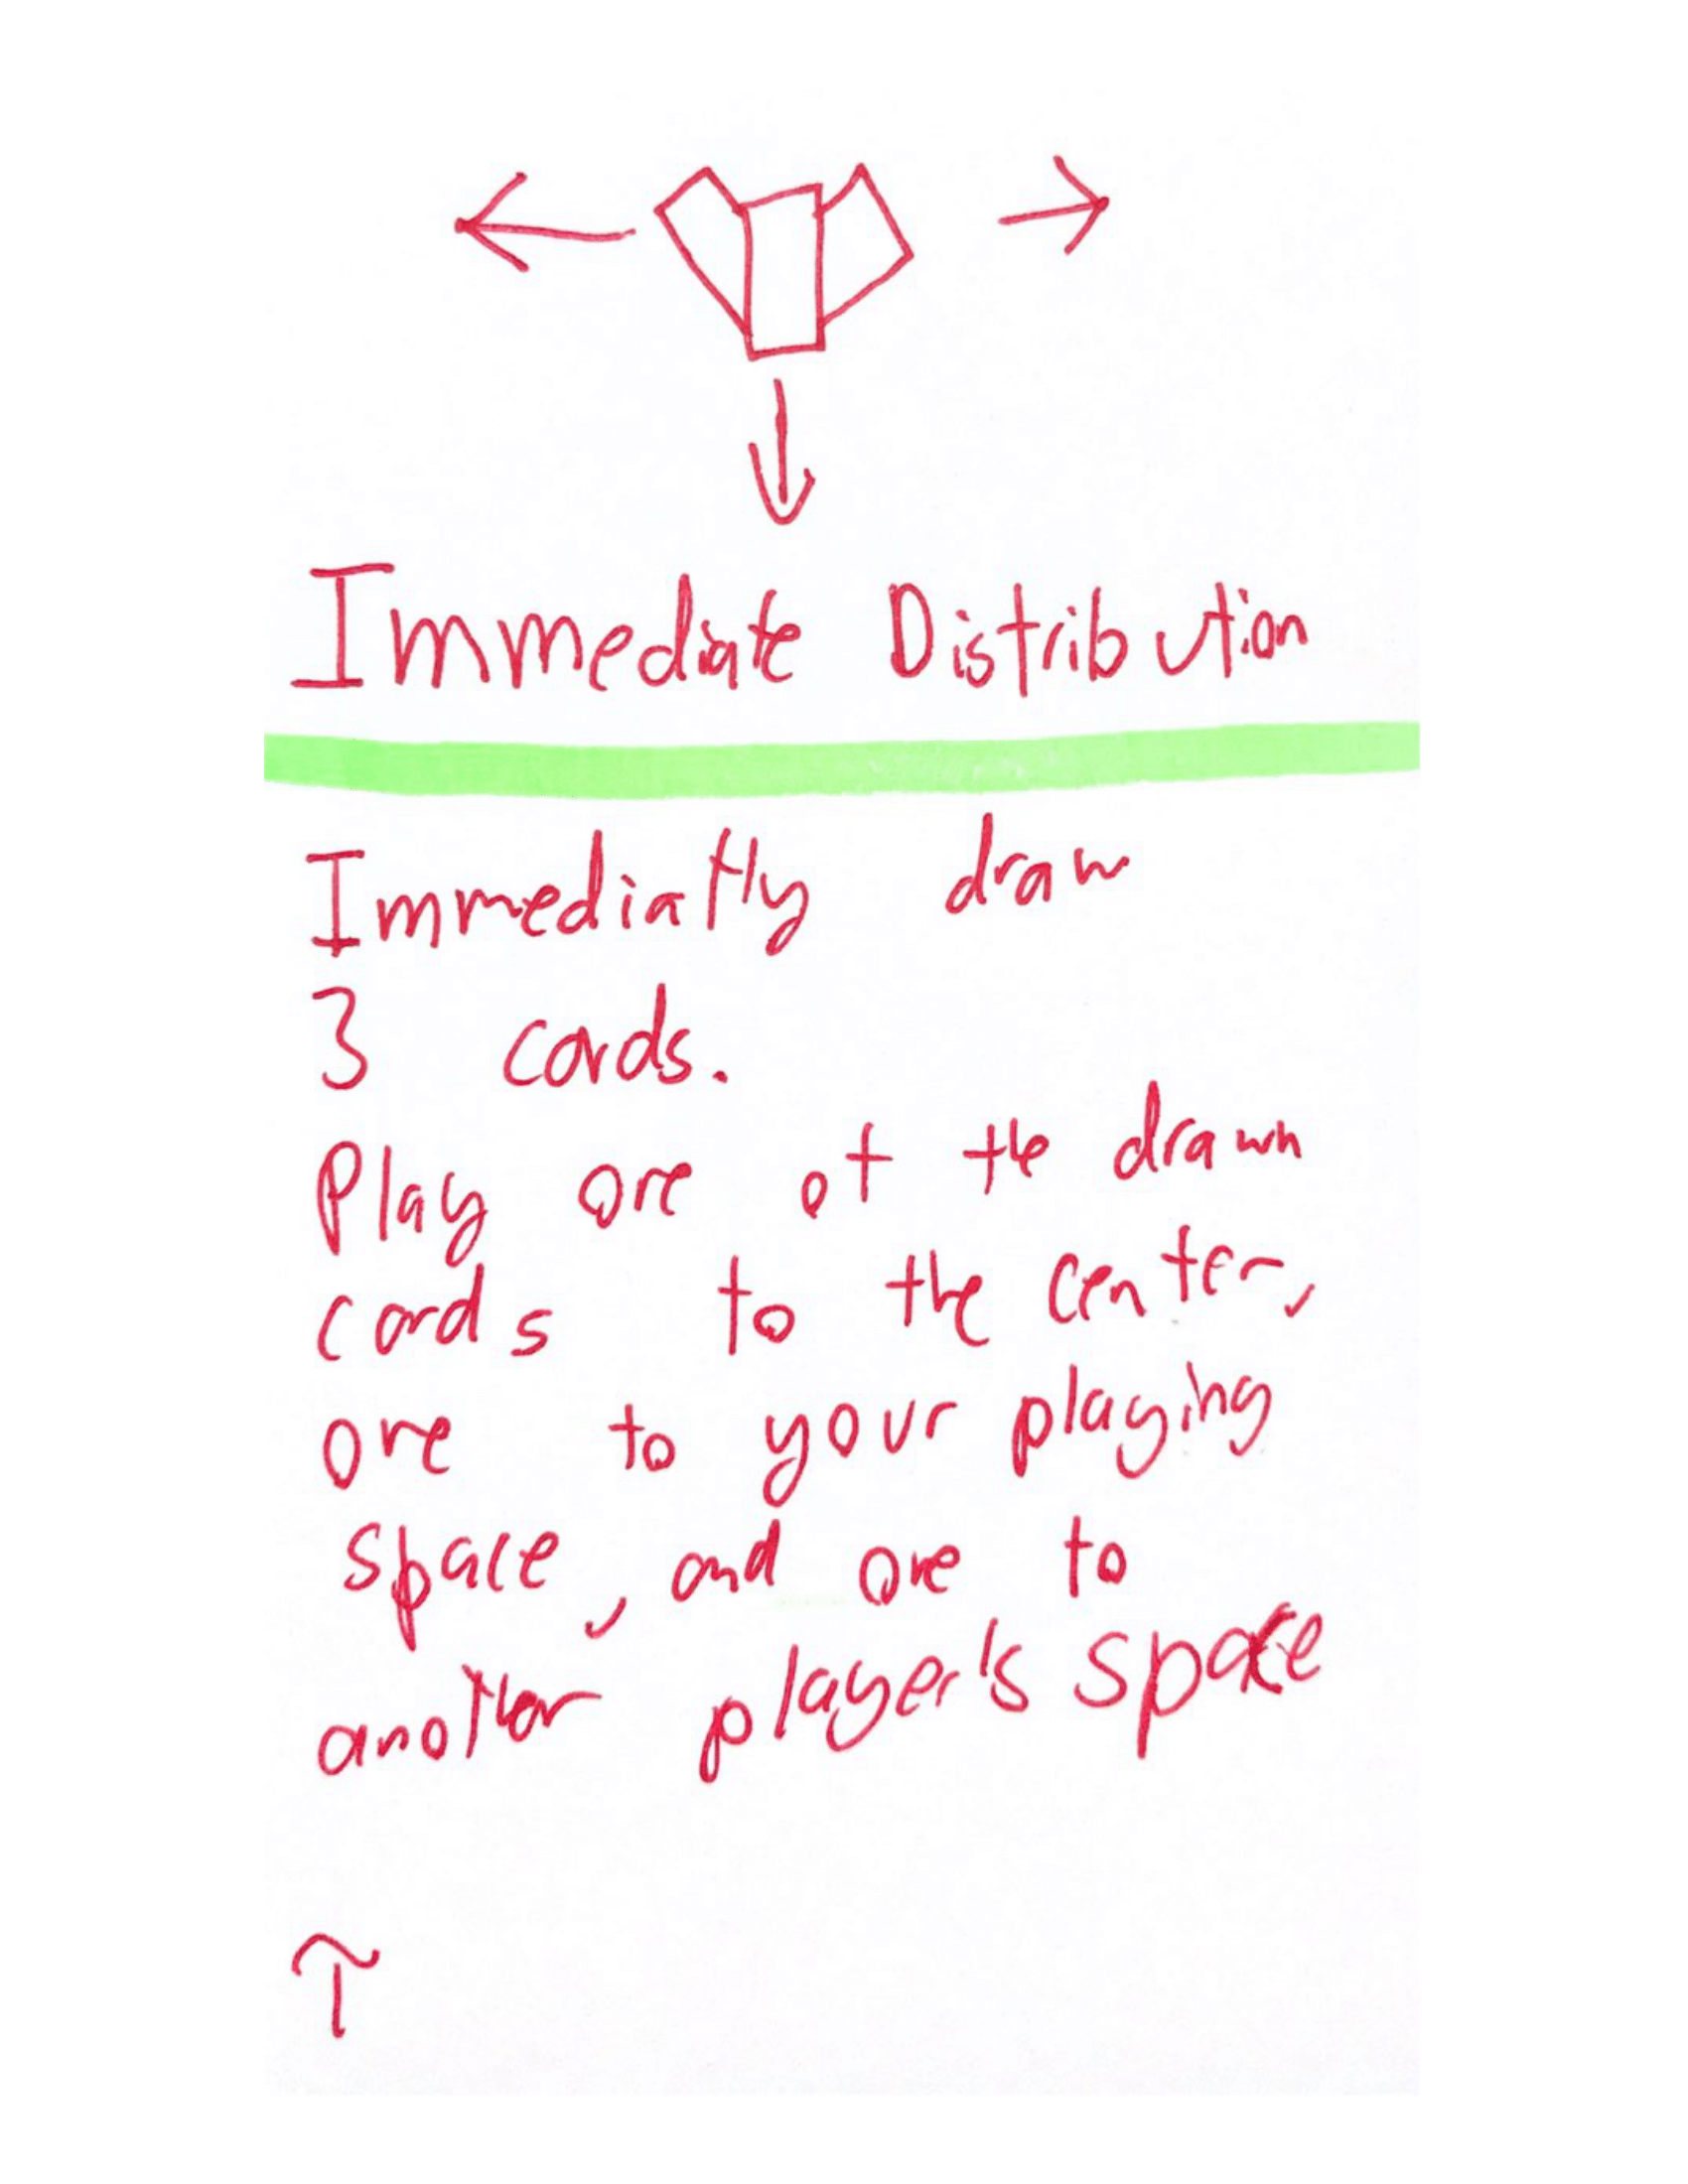 Immediate Distribution
Immediatly draw
3 cards.
Play one of the drawn
cards to the center,
one to your playing
space, and one to
another player's space
τ